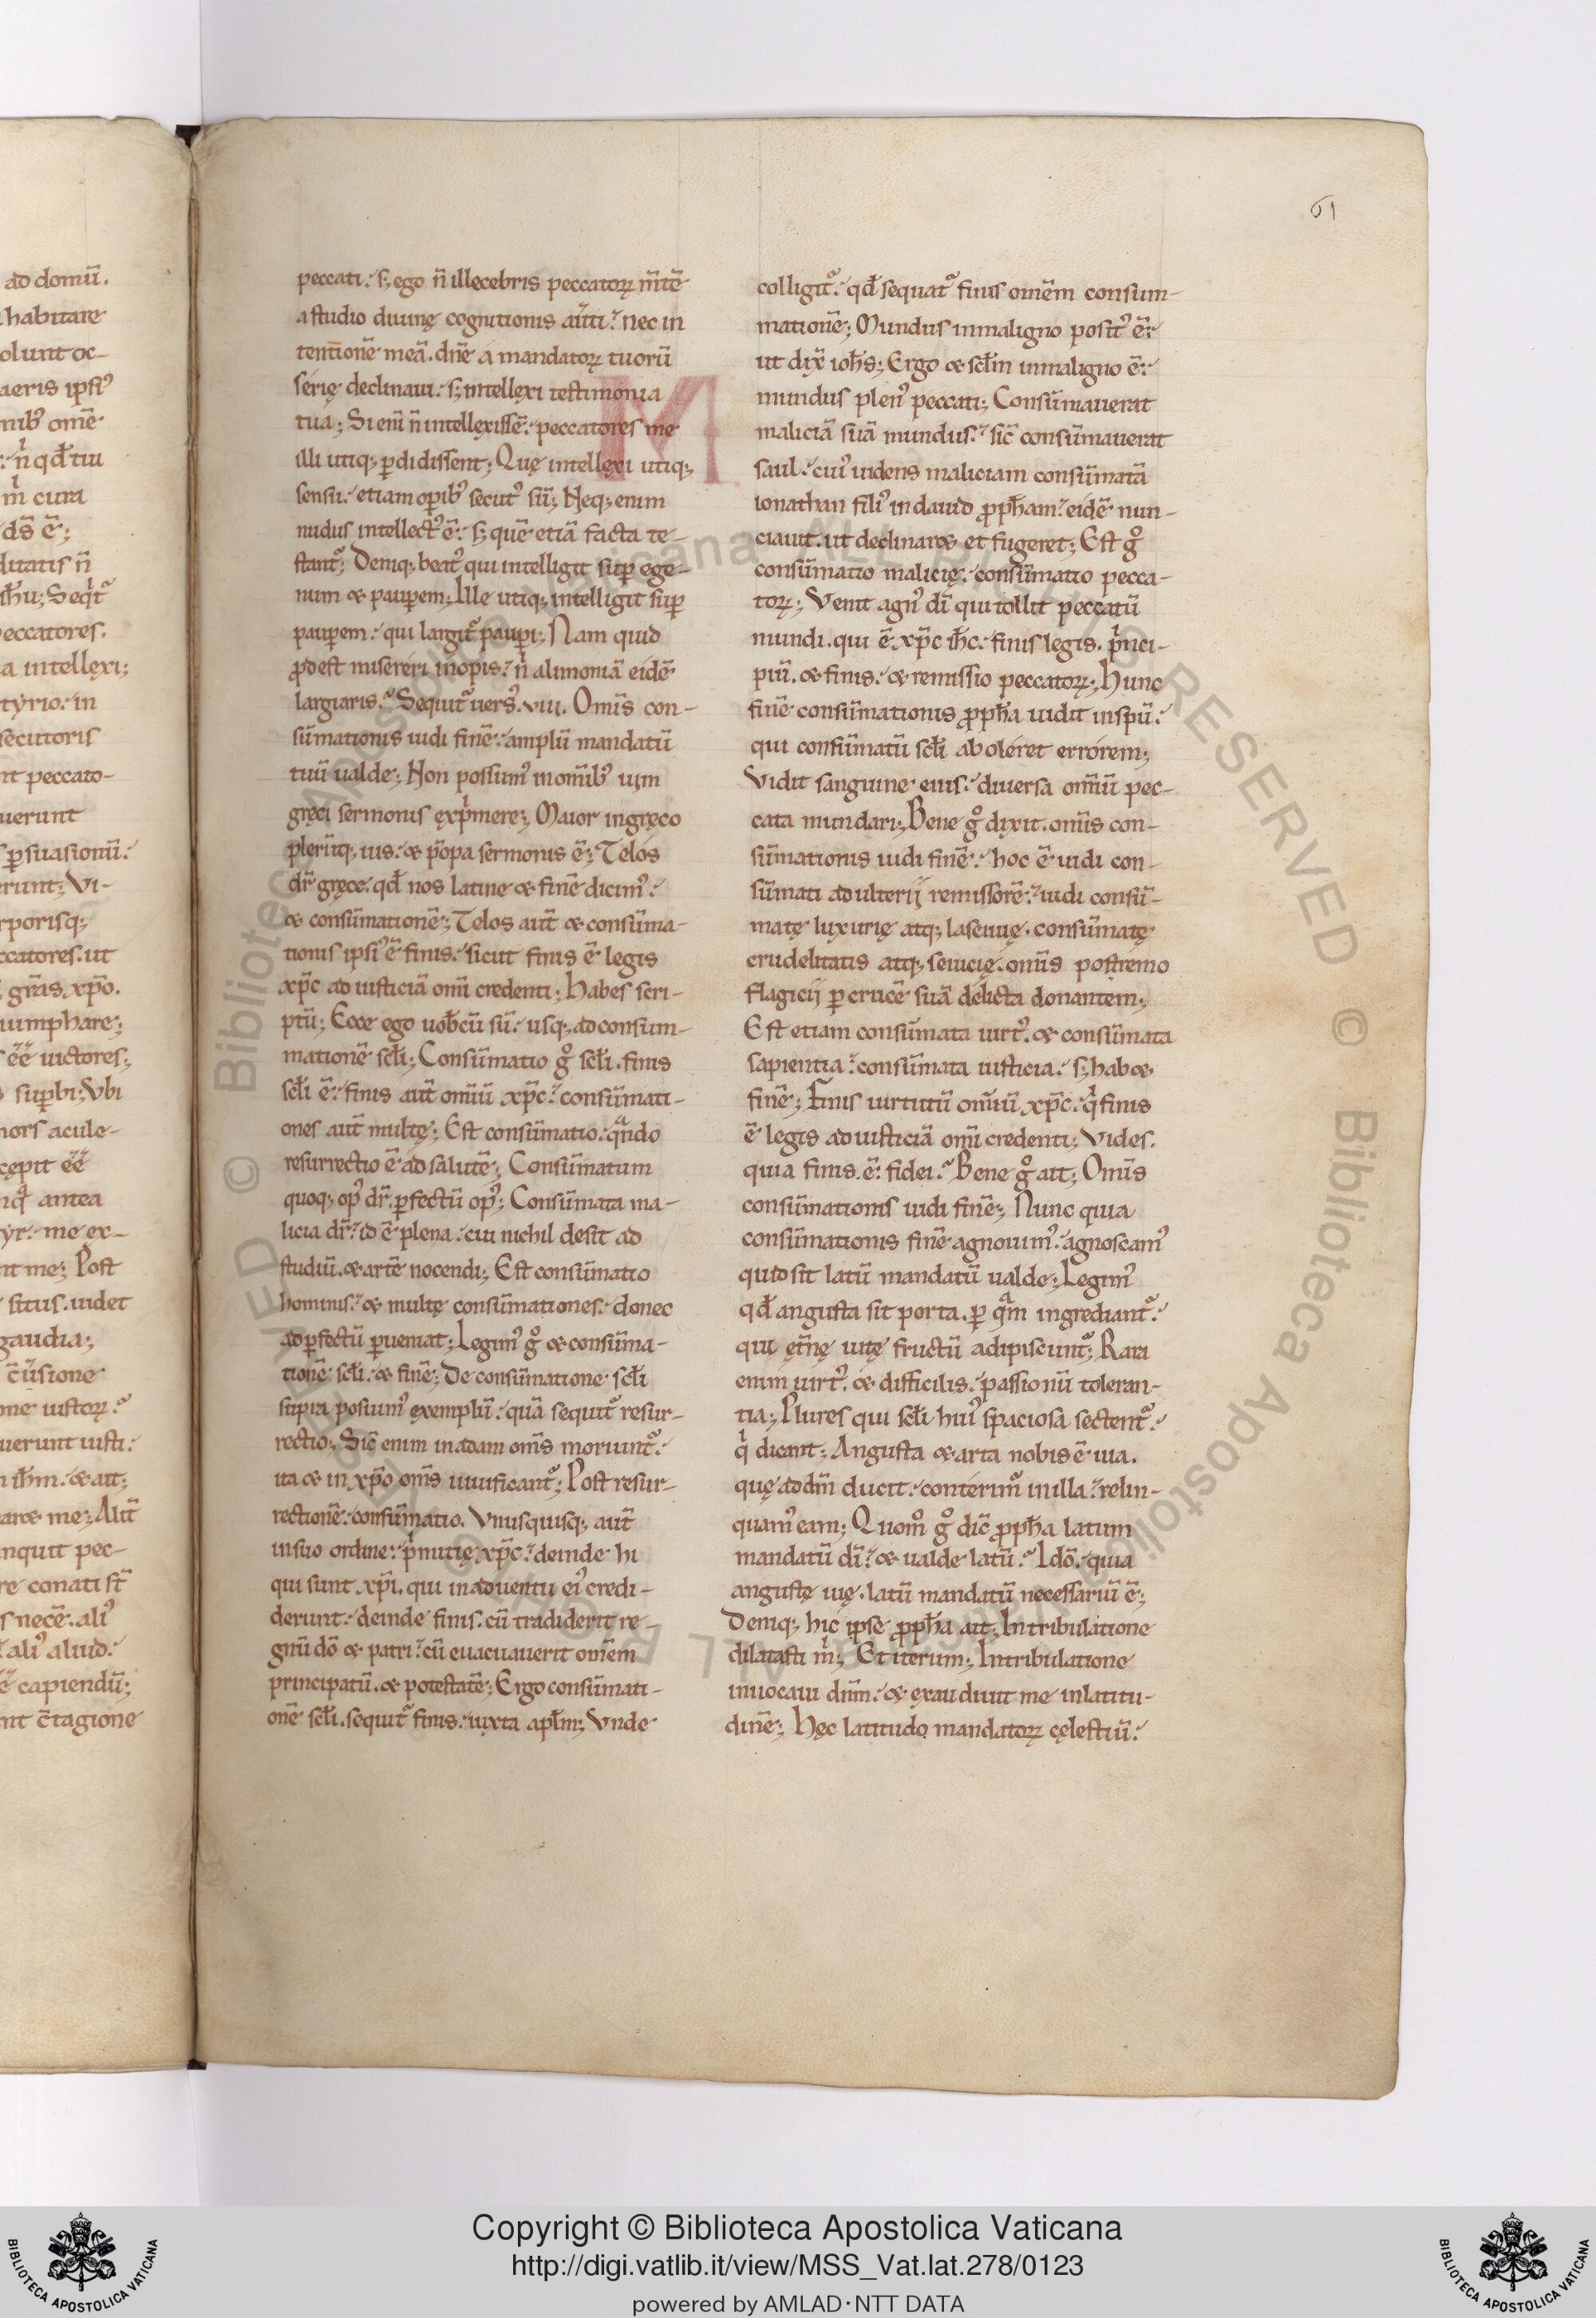 61
ad domū.
habitare
olunt oc-
aeris ipsiꝰ
nibꝰ omē
n̄ qđ tui
m̄ cura
ds̄ ē;
ditatis n̄
eccatores.
a intellexi;
tyrio. in
secutoris
nt peccato-
uerunt
ꝑsuasionū.
erunt; Vi-
rporisq;
ccatores. ut
gr̄as xp̄o.
iumphare;
ēē uictores;
suꝑbi; Vbi
mors acule-
cępit ēē
antea
tyr. me ex-
nt me; Post
situs. uidet
gaudia;
one iustoꝝ.
uerunt iusti.
ih̄m. & ait;
ar& me; Alit̄
inquit pec-
re conati st̄
s necē. aliꝰ
aliꝰ aliud.
ē capiendū;
nt c̄tagione
peccati. s; ego n̄ illecebris peccatoꝝ m̄tē
a studio diuinę cognitionis au̅ti. nec in
tentionē meā. dn̄e a mandatoꝝ tuorū
serię declinaui. s; intellexi testimonia
tua; Si eni̅ n̄ intellexissē. peccatores me
illi utiq; ꝑdidissent; Quę intellexi utiq;
sensu. etiam oꝑibꝰ secutꝰ sū; Neq; enim
nudus intellectꝰ ē. s; quē etiā facta te-
stant᷑; Deniq; beatꝰ qui intelligit suꝑ ege-
num & pauꝑem; Ille utiq; intelligit suꝑ
pauꝑem. qui largit᷑ pauꝑi; Nam quid
ꝓdest misereri inopis. n̄ alimoniā eidē
largiaris. Sequit᷑ uersꝰ. viii. Omīs con-
sūmationis uidi finē. amplū mandatū
tuū ualde; Non possumꝰ in omībꝰ uim
gręci sermonis exp̍mere; Maior in gręco
pleru̅q; uis. & pōpa sermonis ē; Telos
dr̄ gręce. qđ nos latine & finē dicimꝰ.
& consūmationē; Telos aut̄ & consūma-
tionis ipsiꝰ ē finis. sicut finis ē legis
xp̄c ad iusticiā omī credenti; Habes scri-
ptū; Ecce ego uob̄cū sū. usq; ad consum-
mationē scl̄i; Consūmatio gͦ scl̄i. finis
scl̄i ē. finis aut̄ omīū xp̄c. consūmati-
ones aut̄ multę; Est consūmatio. qͣndo
resurrectio ē ad salutē; Consūmatum
quoq; opꝰ dr̄. ꝑfectū opꝰ; Consūmata ma-
licia dr̄. id ē plena. cui nichil desit ad
studiū. & artē nocendi; Est consūmatio
hominis. & multę consūmationes. donec
ad ꝑfectū ꝑueniat; Legimꝰ gͦ & consūma-
tionē scl̄i. & finē; De consūmatione scl̄i
supra posuimꝰ exemplū. quā sequit᷑ resur-
rectio; Sic̄ enim in adam om̄s moriunt᷑.
ita & in xp̄o om̄s uiuificant᷑; Post resur-
rectionē. consūmatio. Vnusquisq; aut̄
in suo ordine. p̍mitię xp̄c. deinde hi
qui sunt xp̄i. qui in aduentu eiꝰ credi-
derunt. deinde finis. cū tradiderit re-
gnū dō & patri. cū euacuauerit omēm
principatū. & potestatē; Ergo consūmati-
onē scl̄i. sequit᷑ finis. iuxta apl̄m; Vnde
colligit᷑. qđ sequat᷑ finis omēm consum-
mationē; Mundus in maligno positꝰ ē.
ut dix̄ ioh̄s; Ergo & scl̄m in maligno ē.
mundus plenꝰ peccati; Consūmauerat
maliciā suā mundus. sic̄ consūmauerat
saul. cuiꝰ uidens maliciam consūmatā
ionathan filiꝰ in dauid ꝓph̄am. eidē nun-
ciauit. ut declinar& et fugeret; Est gͦ
consūmatio malicię. consūmatio pecca-
toꝝ; Venit agnꝰ dī qui tollit peccatū
mundi. qui ē xp̄c ih̄c. finis legis. p̍nci-
piū. & finis. & remissio peccatoꝝ; Hunc
finē consūmationis ꝓph̄a uidit in spū.
qui consūmatū scl̄i aboleret errorem;
Vidit sanguine eius. diuersa omīū pec-
cata mundari; Bene gͦ dixit. omīs con-
sūmationis uidi finē. hoc ē uidi con-
sūmati adulterij remissorē. uidi consū-
matę luxurię atq; lasciuię. consūmatę
crudelitatis atq; seuicię. omīs postremo
flagicij ꝑ crucē suā delicta donantem;
Est etiam consūmata uirtꝰ. & consūmata
sapientia. consūmata iusticia. s; hab&
finē; Finis uirtutū omīū xp̄c. q̍ finis
ē legis ad iusticiā omī credenti; Vides.
quia finis. ē. fidei. Bene gͦ ait; Omīs
consūmationis uidi finē; Nunc quia
consūmationis finē agnouimꝰ. agnoscamꝰ
quid sit latū mandatū ualde; Legimꝰ
qđ angusta sit porta. ꝑ qͣm ingrediant᷑.
qui et̄nę uitę fructū adipiscunt᷑; Rara
enim uirtꝰ. & difficilis. passionū toleran-
tia; Plures qui scl̄i huiꝰ spaciosa sectent᷑.
q̍ dicant; Angusta & arta nobis ē uia.
quę ad dm̄ ducit. conterim᷑ in illa. relin-
quamꝰ eam; Quom̊ gͦ dic̄ ꝓph̄a latum
mandatū dī. & ualde latū. Idō. quia
angustę uię. latū mandatū necessariū ē;
Deniq; hic ipse ꝓph̄a ait; In tribulatione
dilatasti m̍; Et iterum; In tribulatione
inuocaui dn̄m. & exaudiuit me in latitu-
dinē; Hęc latitudo mandatoꝝ cęlestiū.
Copyright © Biblioteca Apostolica Vaticana
http://digi.vatlib.it/view/MSS_Vat.lat.278/0123
powered by AMLAD·NTT DATA
BIBLIOTECA APOSTOLICA VATICANA
BIBLIOTECA APOSTOLICA VATICANA